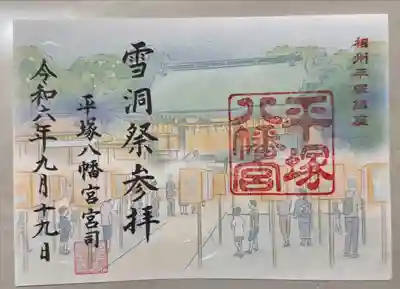 相州平塚鎮座
平塚
八幡宮
雪洞祭参拝
平塚八幡宮宮司
令和六年九月十九日